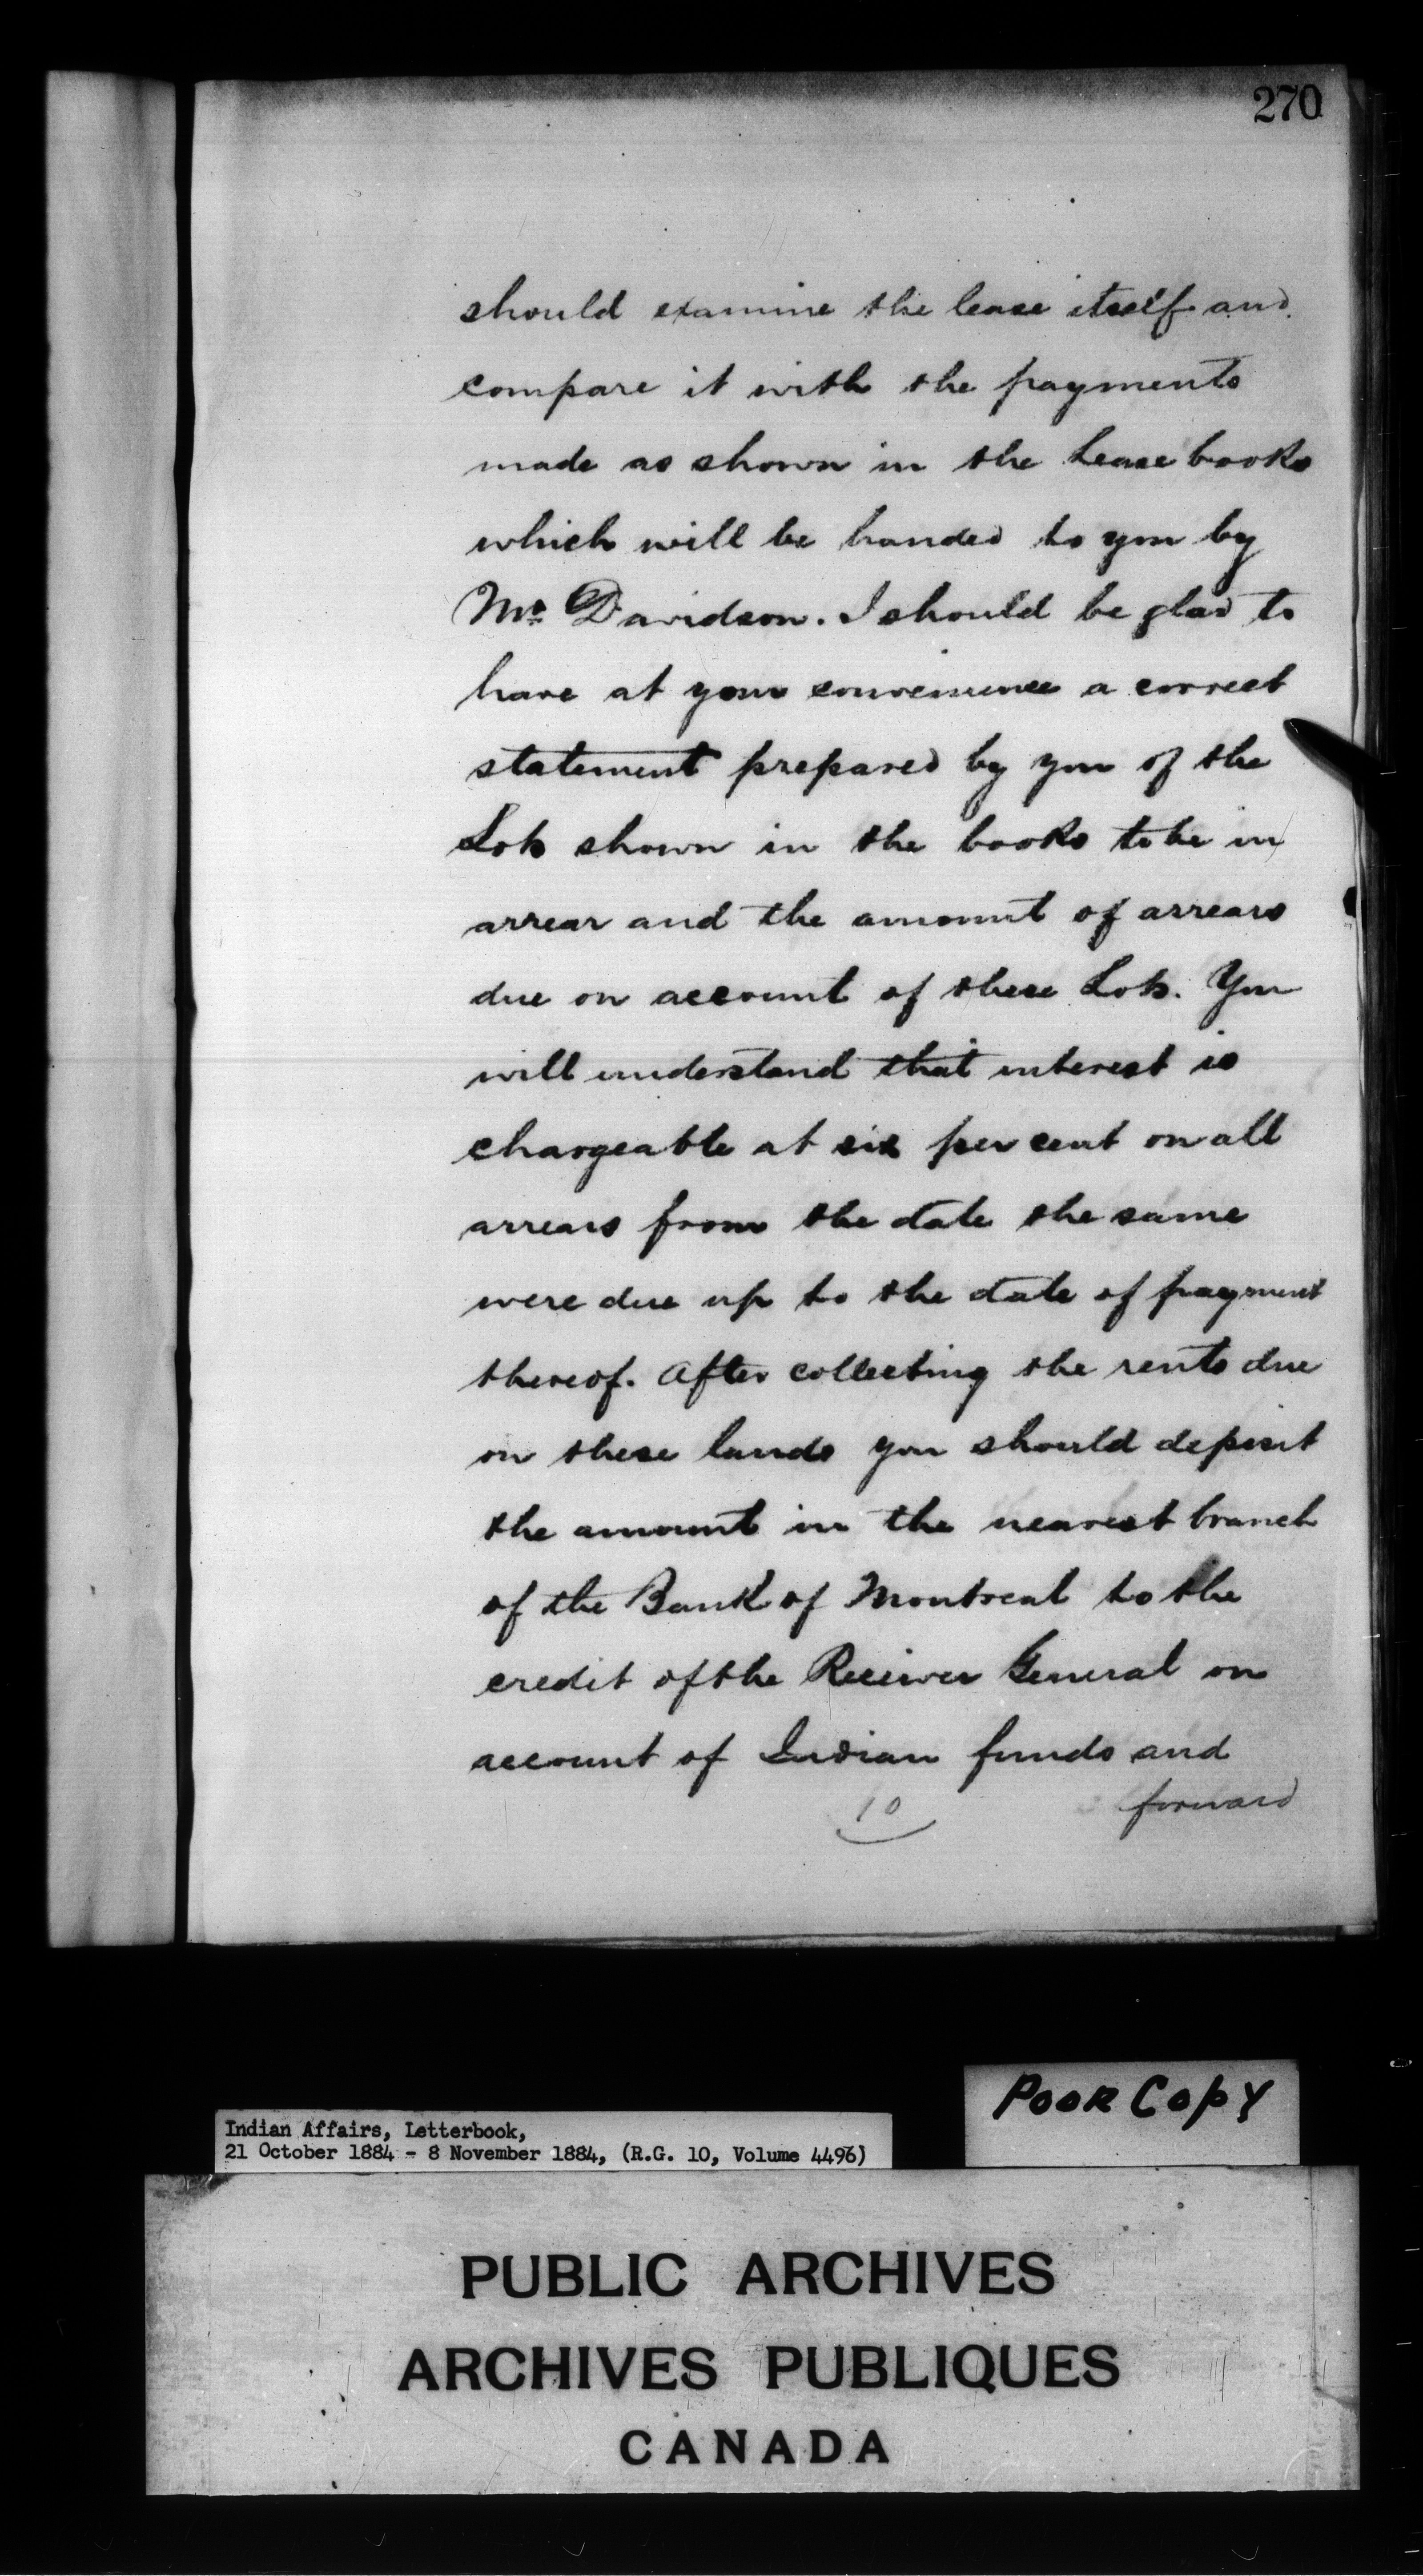 270
should examine the lease itself and
compare it with the payments
made as shown in the Lease books
which will be handed to you by
Mr. Davidson. I should be glad to
have at your convenience a correct
statement prepared by you of the
Lots shown in the books to be in
arrear and the amount of arrears
due on account of these Lots. You
will understand that interest is
chargeable at six per cent on all
arrears from the date the same
were due up to the date of payment
thereof. After collecting the rents due
on these lands you should deposit
the amount in the nearest branch
of the Bank of Montreal to the
credit of the Receiver General on
account of Indian funds and
forward
10
Poor Copy
Indian Affairs, Letterbook,
21 October 1884 - 8 November 1884, (R.G. 10, Volume 4496)
PUBLIC ARCHIVES
ARCHIVES PUBLIQUES
CANADA